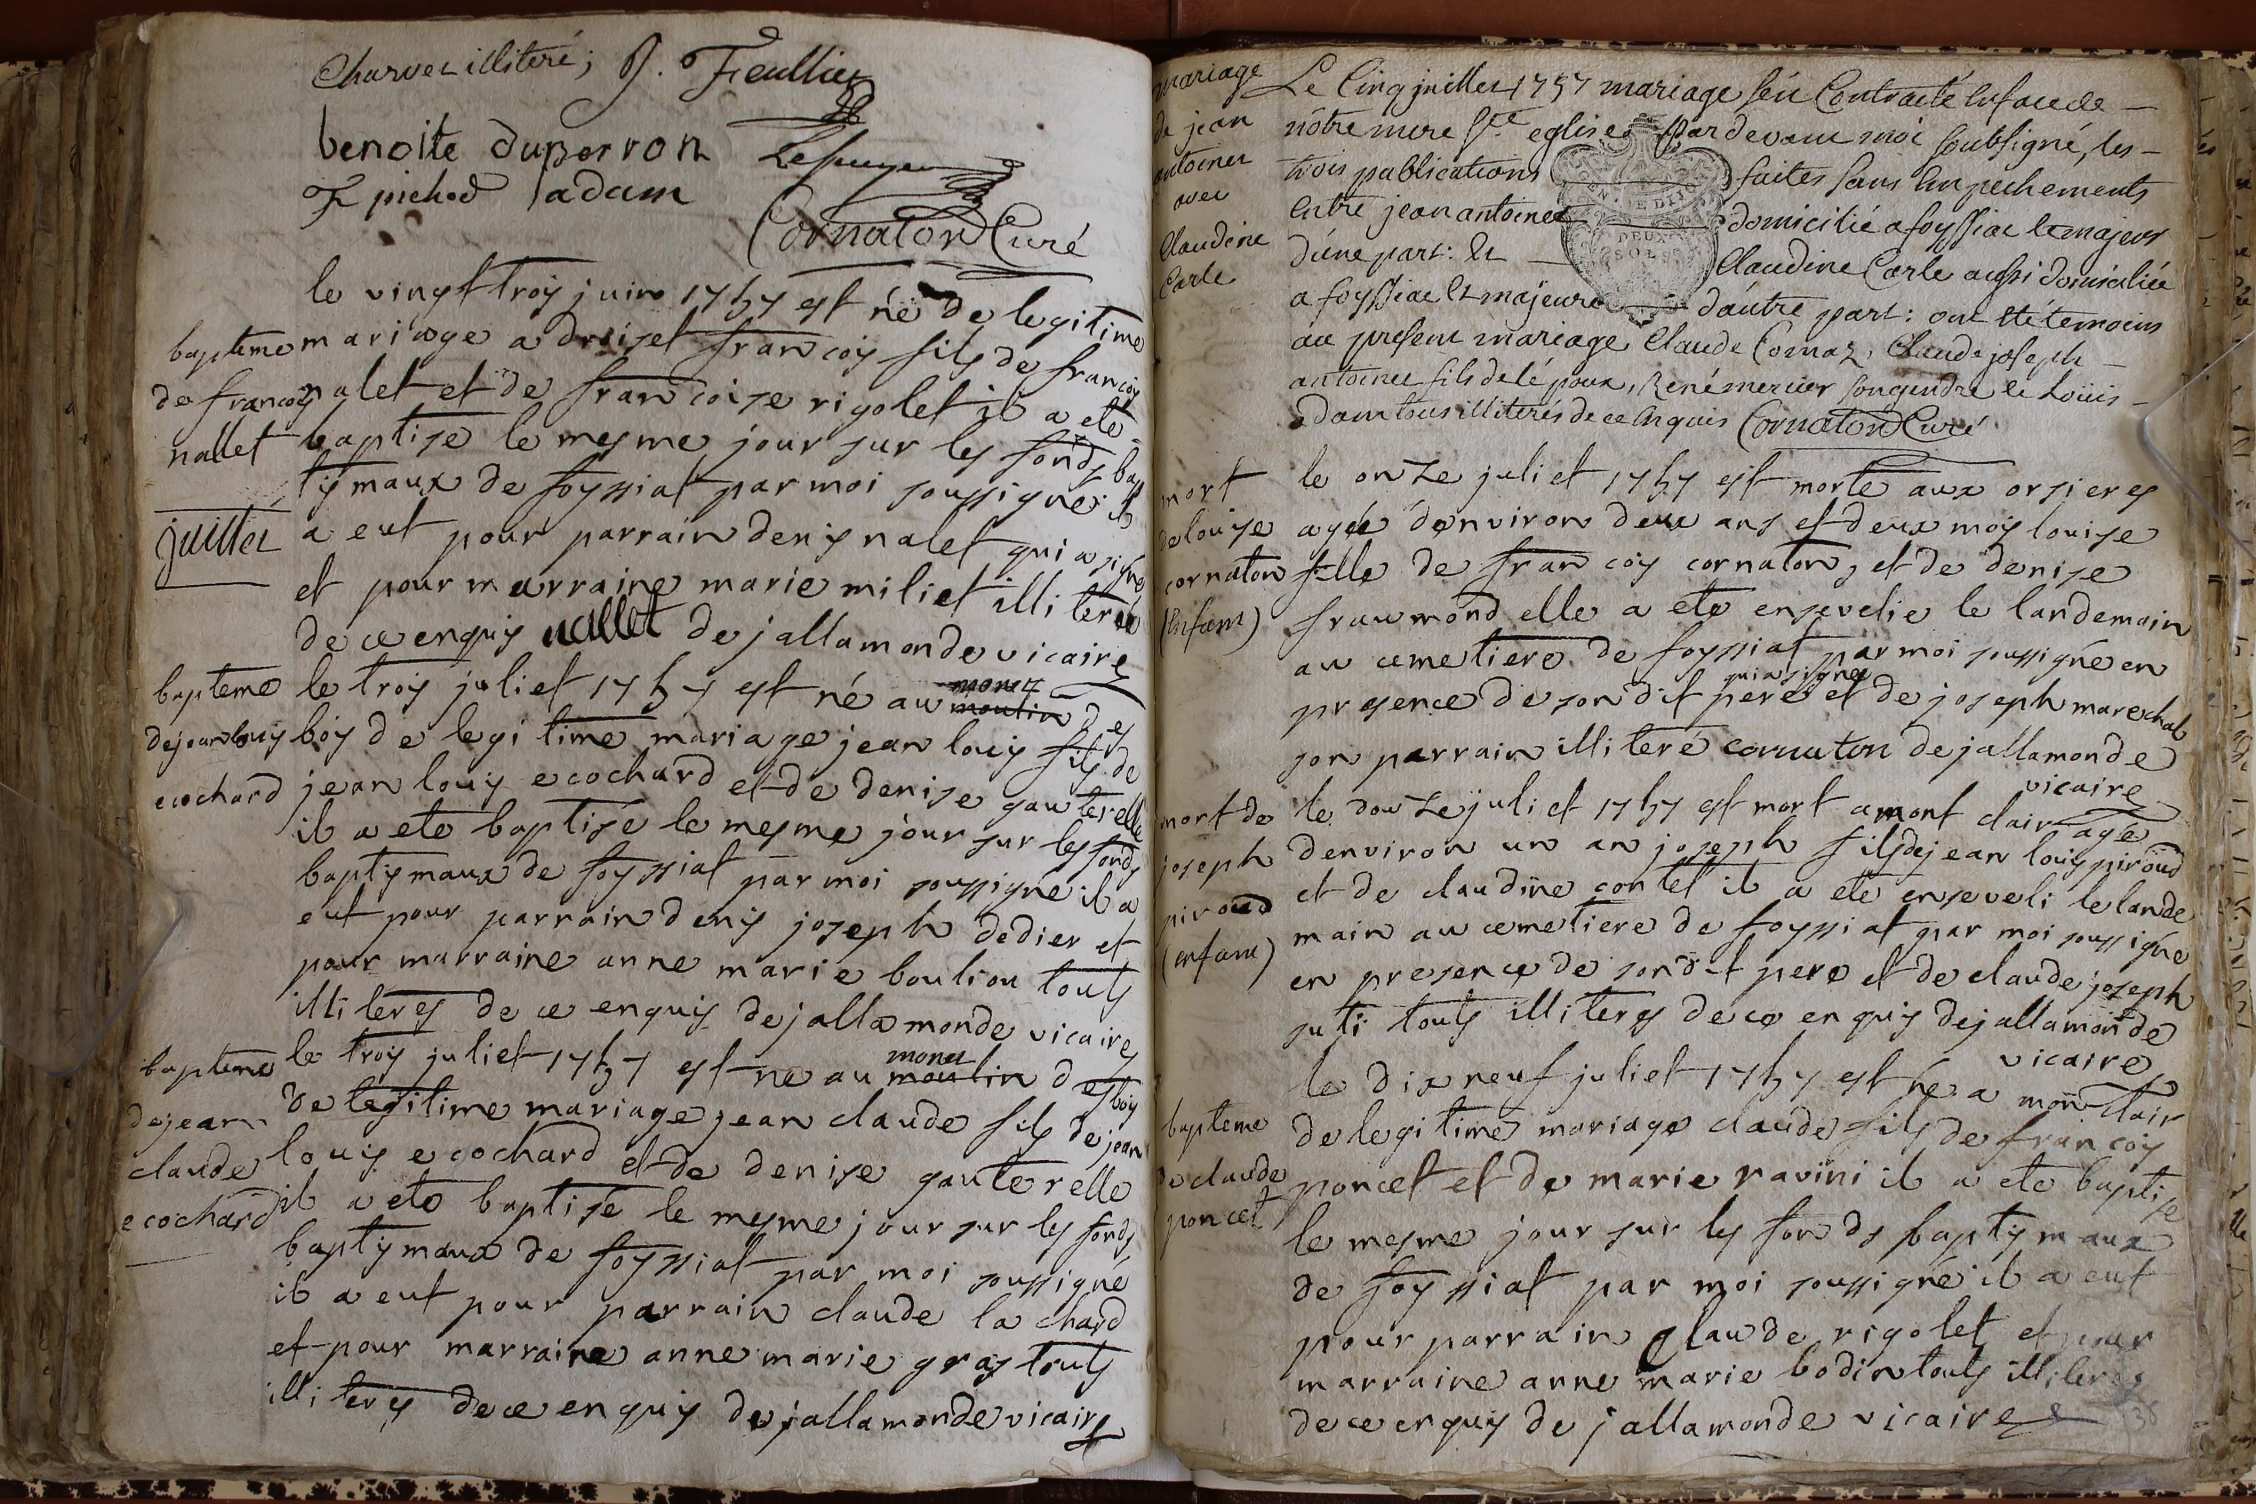 Charvet illiteré; J. Feullier
benoite duperron
F pichod ladam
Cornaton Curé
le vingt troy juin 1757 est né de legitime
bapteme
de francoy
nallet
mariage a droiset francoy fils de francoy
nalet et de francoise rigolet il a eté
baptise le mesme jour sur ly fonds bap
tymaux de foyssiat par moi soussigné il
juillet
a eut pour parrain deny nalet qui a signé
et pour marraine marie miliet illiteré
de ce enquis nallet dejallamonde vicaire
bapteme
de jean louy
ecochard
le troy juliet 1757 est né au moulin monet des
boy de legitime mariage jean louy fils de
jean louy ecochard et de denise gauterelle
il a eté baptisé le mesme jour sur ly fonds
baptymaux de foyssiat par moi soussigné il a
eut pour parrain deny joseph dedier et
pour marraine anne marie bouliou touts
illiterés de ce enquis dejallamonde vicaire
bapteme
de jean
claude
ecochard
le troy juliet 1757 est né au moulin monet des boy
de legitime mariage jean claude fils de jean
louy ecochard et de denise gauterelle
il a eté baptisé le mesme jour sur ly fonds
baptymaux de foyssiat par moi soussigné
il a eut pour parrain claude la chard
et pour marraine anne marie gras touts
illiterés de ce enquis dejallamonde vicaire
mariage
de jean
antoinet
avec
Claudine
Carle
Le Cinq juillet 1757 mariage feu Contracté en face de
nôtre mere Ste eglise par devant moi soubsigné, les
trois publications faites sans empechements
entre jean antoinet domicilié a foyssiac et majeur
d'une part: et Claudine Carle aussi domiciliée
a foyssiac et majeure d'autre part: ont été temoins
DEUX
SOLS
au present mariage Claude Comaz, Claude joseph
antoinet fils de l'époux, René mercier son gendre et Loüis
adam tous illiterés de ce enquis Cornaton Curé
mort
de louise
cornaton
(enfant)
le onze juliet 1757 est morte aux orsieres
agée d'environ deux ans et deux moy louise
fille de francoy cornaton, et de denise
fraumond elle a eté ensevelie le landemain
au cemetiere de foyssiat par moi soussigné en
presence de son dit pere qui a signé et de joseph marechal
son parrain illiteré cornaton dejallamonde
vicaire
mort de
joseph
piroud
(enfant)
le douze juliet 1757 est mort a mont clair agé
d'environ un an joseph fils de jean louy piroud
et de claudine contet il a eté enseveli le lande
main au cemetiere de foyssiat par moi soussigné
en presence de son dit pere et de claude joseph
juti touts illiterés de ce enquis dejallamonde
vicaire
bapteme
de claude
poncet
le dix neuf juliet 1757 est né a mon clair
de legitime mariage claude fils de francoy
poncet et de marie ravini il a eté baptise
le mesme jour sur ly fonds baptymaux
de foyssiat par moi soussigné il a eut
pour parrain Claude rigolet et pour
marraine anne marie bodin touts illiterés
de ce enquis dejallamonde vicaire